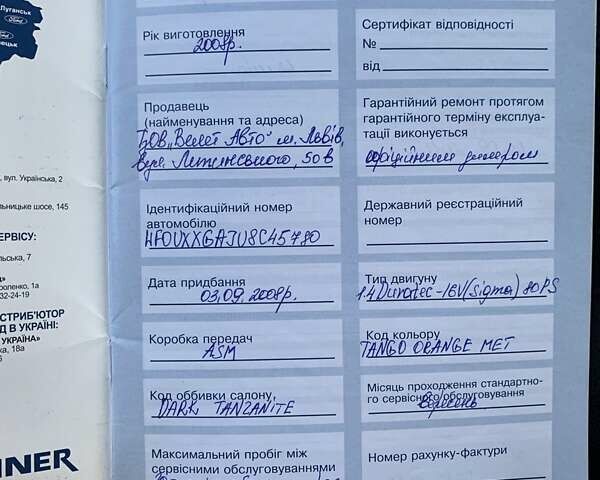 Луганськ
Рік виготовлення
2008р.
Сертифікат відповідності
№
від
Продавець
(найменування та адреса)
ТОВ „Велет Авто" м. Львів,
вул. Липинського, 50в
Гарантійний ремонт протягом
гарантійного терміну експлуа-
тації виконується
офіційним дилером
, вул. Українська, 2
льницьке шосе, 145
Ідентифікаційний номер
автомобілю
WF0UXXGAJU8C45780
Державний реєстраційний
номер
ЕРВІСУ:
льська, 7
роленко, 1а
32-24-19
Дата придбання
03.09.2008р.
Тип двигуну
1.4 Duratec-16V(Sigma) 80PS
СТРИБ'ЮТОР
Д В УКРАЇНІ:
УКРАЇНА»
ка, 18а
6
Коробка передач
ASM
Код кольору
TANGO ORANGE MET
Код оббивки салону
DARK TANZANITE
Місяць проходження стандартно-
го сервісного обслуговування
Вересень
NER
Максимальний пробіг між
сервісними обслуговуваннями
Номер рахунку-фактури